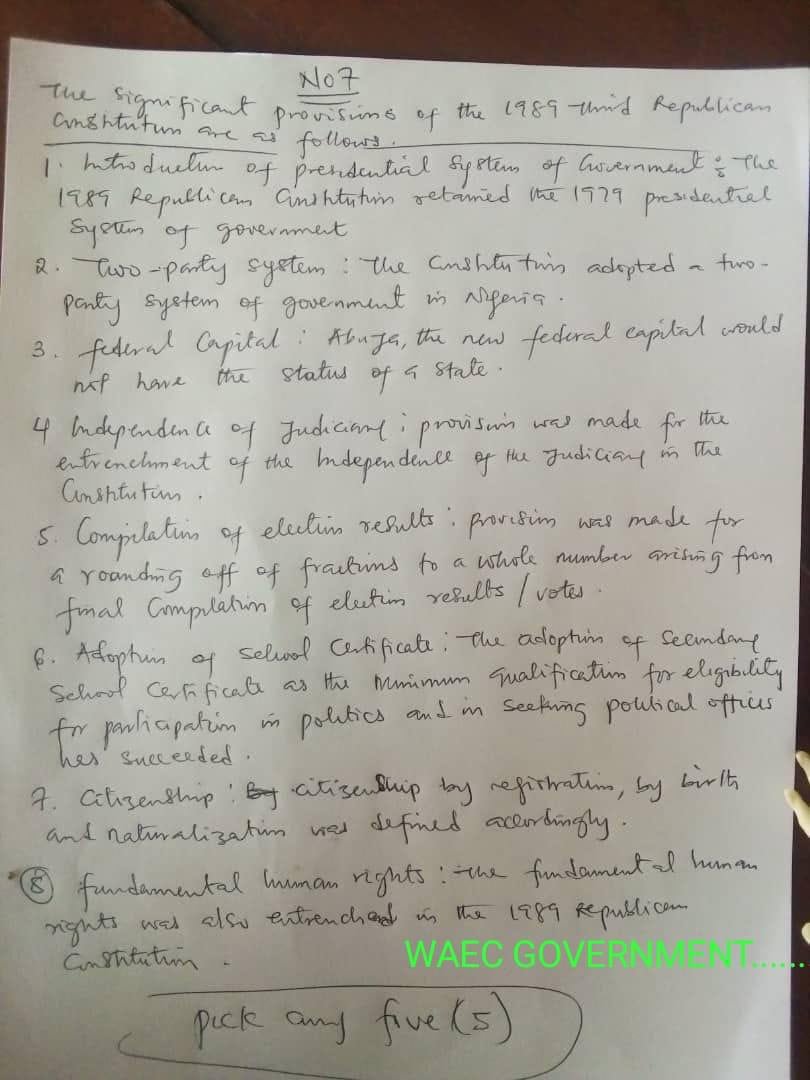 No7
The significant provisions of the 1989 third Republican
Constitution are as follows.
1. Introduction of presidential system of Government : The
1989 Republican Constitution retained the 1979 presidential
System of government
2. Two-party system : The Constitution adopted a two-
party system of government in Nigeria.
3. federal Capital : Abuja, the new federal capital would
not have the status of a state.
4 Independence of Judiciary : provision was made for the
entrenchment of the Independence of the Judiciary in the
Constitution.
5. Compilation of election results : provision was made for
a rounding off of fractions to a whole number arising from
final Compilation of election results / votes.
6. Adoption of School Certificate : The adoption of Secondary
School Certificate as the minimum qualification for eligibility
for participation in politics and in seeking political offices
has succeeded.
7. Citizenship : citizenship by registration, by birth
and naturalization was defined accordingly.
8 fundamental human rights : The fundamental human
rights was also entrenched in the 1989 Republican
Constitution.
WAEC GOVERNMENT......
pick any five (5)